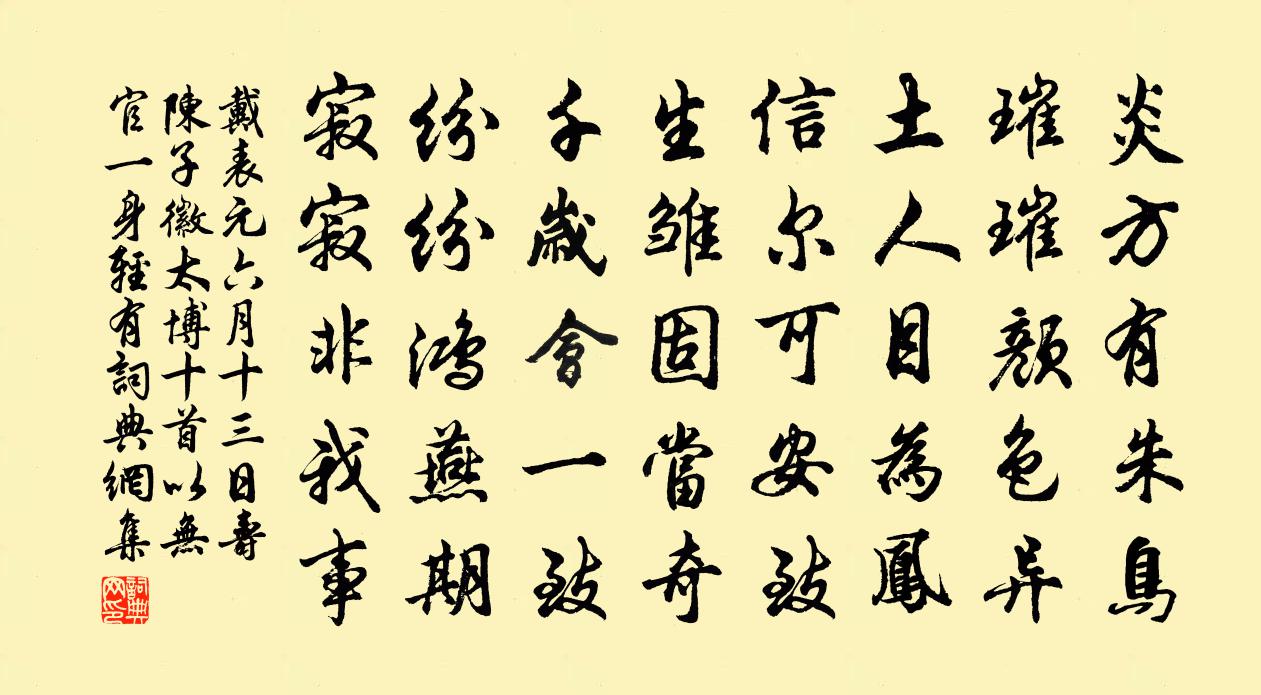 炎方有朱鳥
璀璀顏色异
土人目為鳳
信尔可安致
生雏固當奇
千歲會一致
紛紛鴻燕期
寂寂非我事
戴表元六月十三日壽
陳子徽太博十首以無
官一身輕有詞典網集